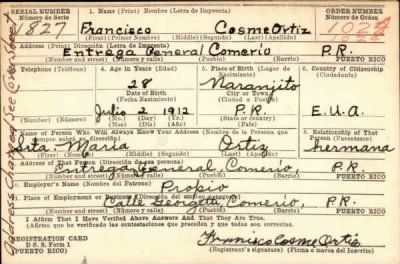 SERIAL NUMBER 1. Name (Print) Nombre (Letra de Imprenta) ORDER NUMBER
Número de Serie Número de Orden
1827 Francisco Cosme Ortiz 1022
(First) (Primer Nombre) (Middle) (Segundo Nombre) (Last) (Apellido)
Address (Print) Dirección (Letra de Imprenta)
Entrega General Comerio P.R.
(Number and street) (Número y calle) (Town) (Pueblo) (Barrio) PUERTO RICO
Telephone (Teléfono) 4. Age in Years (Edad) 5. Place of Birth (Lugar de Nacimiento) 6. Country of Citizenship (Ciudadanía)
28 Naranjito
Date of Birth (Fecha Nacimiento) City or Town (Ciudad o Pueblo)
Julio 2, 1912 P.R. E.U.A.
(Mo.) (Day) (Yr.) (State or country) (País)
Name of Person Who Will Always Know Your Address (Nombre de la Persona que siempre sabrá su dirección) 8. Relationship of That Person (Parentesco)
Srta. María Ortiz hermana
Address of That Person (Dirección de esa persona)
Entrega General, Comerio, P.R.
(Number and street) (Número y calle) (Town) (Pueblo) (Barrio) PUERTO RICO
Employer's Name (Nombre del Patrono)
Propio
Place of Employment or Business
Calle Georgetti, Comerio, P.R.
(Number and street) (Número y calle) (Town) (Pueblo) (Barrio) PUERTO RICO
I Affirm That I Have Verified Above Answers and That They Are True.
(Afirmo que he verificado las contestaciones que preceden y que estas son ciertas)
REGISTRATION CARD Francisco Cosme Ortiz
D. S. S. Form 1 (Registrant's signature) (Firma o marca del Inscrito)
PUERTO RICO
Address Change See Cover Sheet